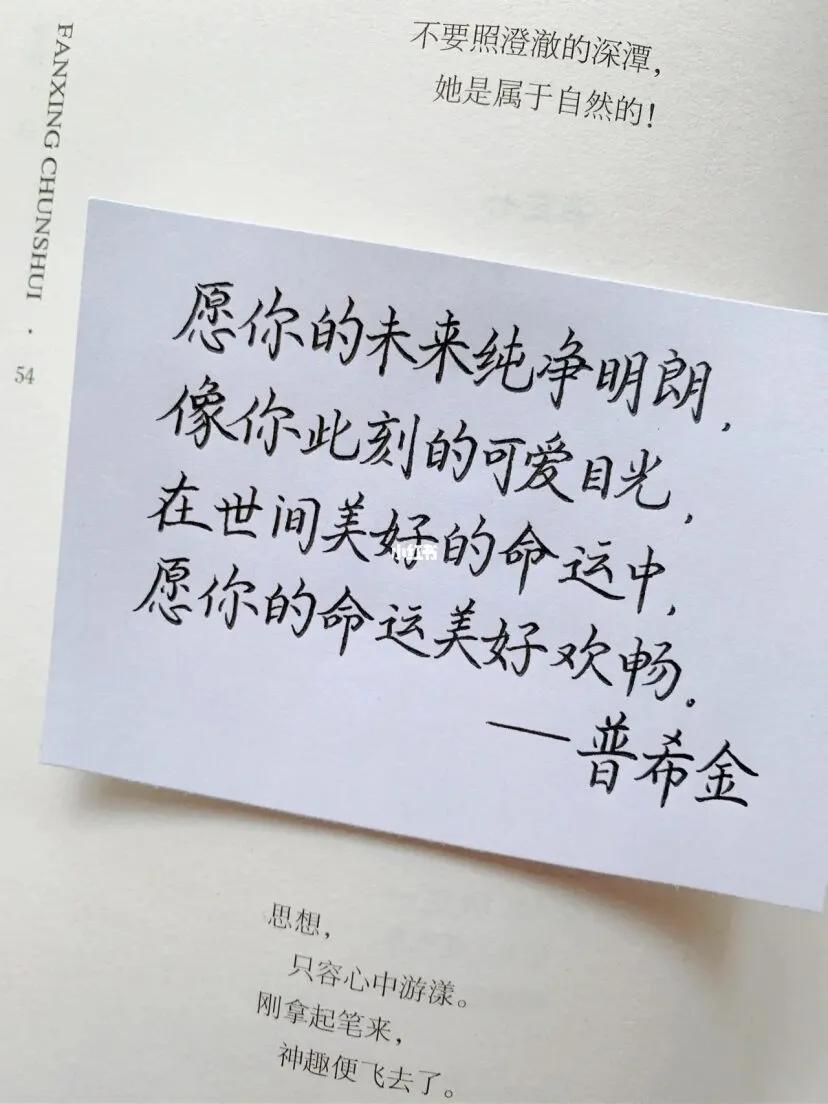 不要照澄澈的深潭,
她是属于自然的!
FANXING CHUNSHUI ·
54
愿你的未来纯净明朗,
像你此刻的可爱目光,
在世间美好的命运中,
愿你的命运美好欢畅。
——普希金
小红书
思想,
只容心中游漾。
刚拿起笔来,
神趣便飞去了。